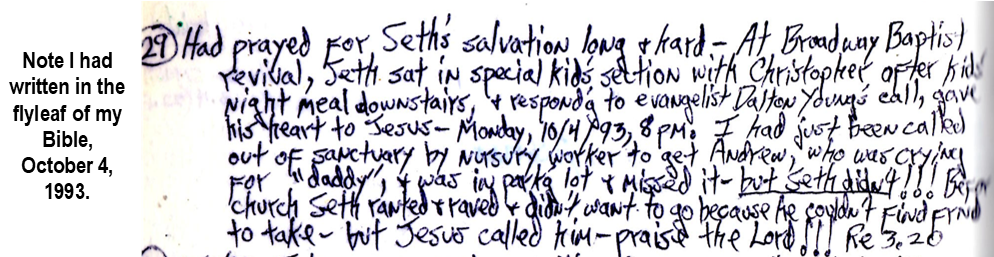 Note I had
written in the
flyleaf of my
Bible,
October 4,
1993.
29 Had prayed for Seth's salvation long & hard - At Broadway Baptist
revival, Seth sat in special kids' section with Christopher after kids'
night meal downstairs, & respond'g to evangelist Dalton Young's call, gave
his heart to Jesus - Monday, 10/4/93, 8 PM. I had just been called
out of sanctuary by nursury worker to get Andrew, who was crying
for "daddy", & was in park'g lot & missed it - but Seth didn't!!!
church Seth ranted & raved & didn't want to go because he couldn't find frnd
to take - but Jesus called him - praise the Lord!!! Re 3:20